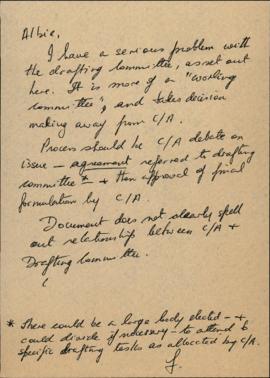 Albie,
I have a serious problem with
the drafting committee, as set out
here. It is more of a "working
committee", and takes decision
making away from C/A.
Process should be C/A debate on
issue — agreement referred to drafting
committee* — + then approval of final
formulation by C/A.
Document does not clearly spell
out relationship between C/A +
Drafting Committee.
(
* There could be a large body elected — +
could divide if necessary — to attend to
specific drafting tasks as allocated by C/A.